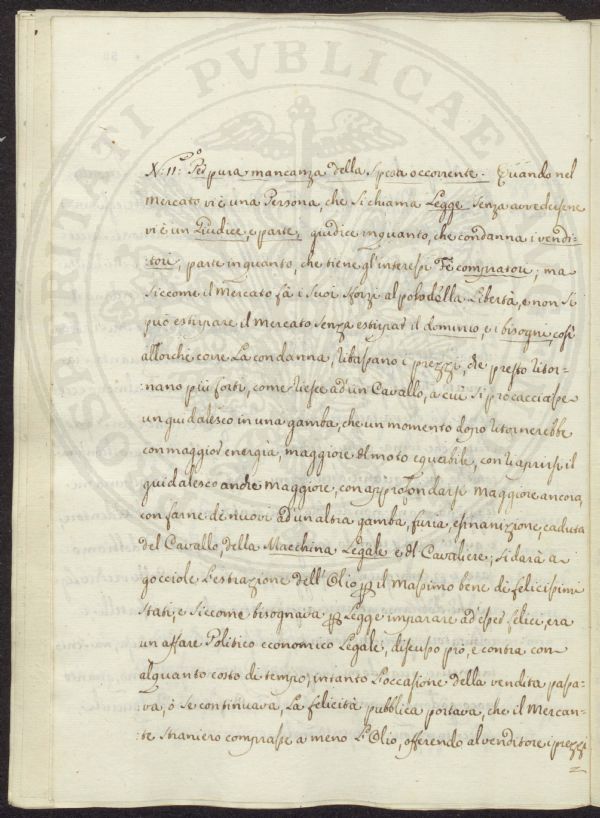 N: 11: Per pura mancanza della spesa occorrente. Quando nel
mercato vi è una Persona, che si chiama Legge senza avvedersene
vi è un Giudice, e parte; giudice in quanto, che condanna i vendi-
tori, parte in quanto, che tiene gl'interessi del compratore; ma
siccome il mercato fà i suoi sforzi al polo della Libertà, e non si
può estirpare il mercato senza estirpar il dominio, e i bisogni, così
allorchè corre La condanna, ribassano i prezzi, che presto ritor-
nano più forti, come riesce ad un Cavallo, a cui si procacciasse
un guidalesco in una gamba, che un momento dopo ritornerebbe
con maggior energia, maggiore del moto equabile, con riaprirsi il
guidalesco anche maggiore, con approfondarsi maggiore ancora,
con farne de nuovi ad un altra gamba, furia, esinanizione, caduta
del Cavallo, della Macchina Legale e del Cavaliere; si darà a
gocciole L'estrazione dell'Olio per il massimo bene de felicissimi
stati, e siccome bisognava per Legge imparare ad esser felici, era
un affare Politico economico Legale, discusso pro, e contra con
alquanto costo di tempo, intanto L'occasione della vendita passa-
va, ò se continuava, La felicità pubblica portava, che il Mercan-
te straniero comprasse a meno L'Olio, offerendo al venditore i prezzi
PVBLICAE